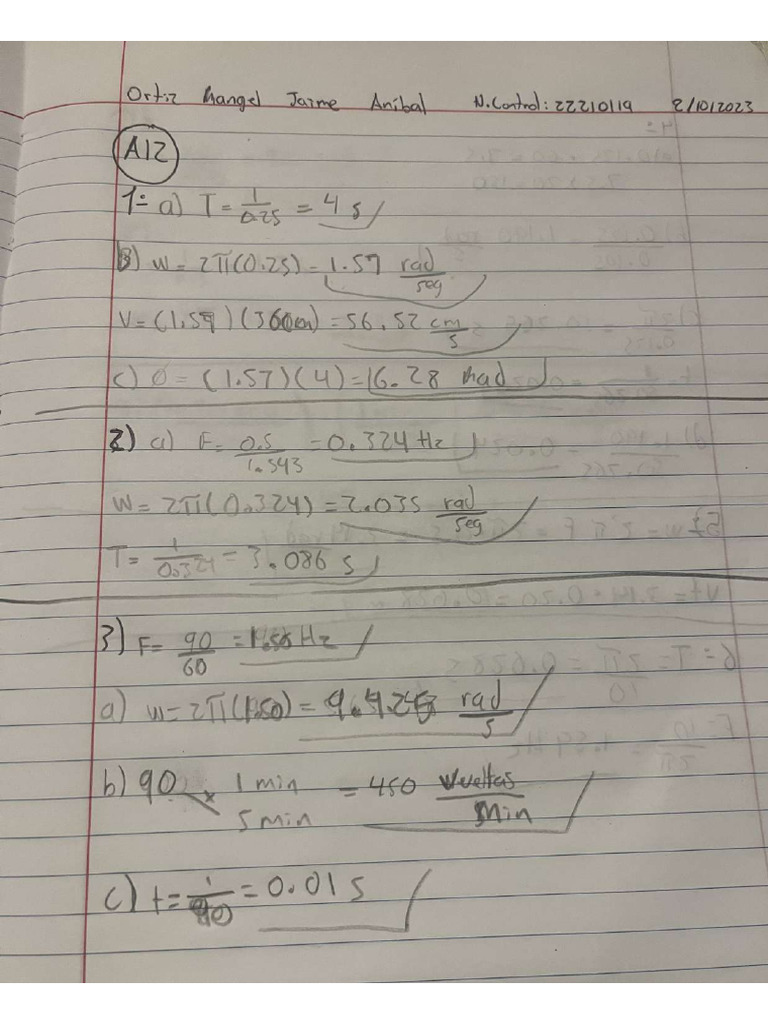 Ortiz Rangel Jaime Anibal N.Control: 22210119 2/10/2023
A12
1÷ a) T = 1/0.25 = 4 s
B) W = 2π(0.25) = 1.57 rad/seg
V = (1.57)(36cm) = 56.52 cm/s
c) O = (1.57)(4) = 6.28 rad
2) a) F = 0.5/1.543 = 0.324 Hz
W = 2π(0.324) = 2.035 rad/seg
T = 1/0.324 = 3.086 s
3) F = 90/60 = 1.50 Hz
a) W = 2π(1.50) = 9.425 rad/s
b) 90 × 1 min/5 min = 450 Vueltas/Min
c) t = 1/90 = 0.01 s